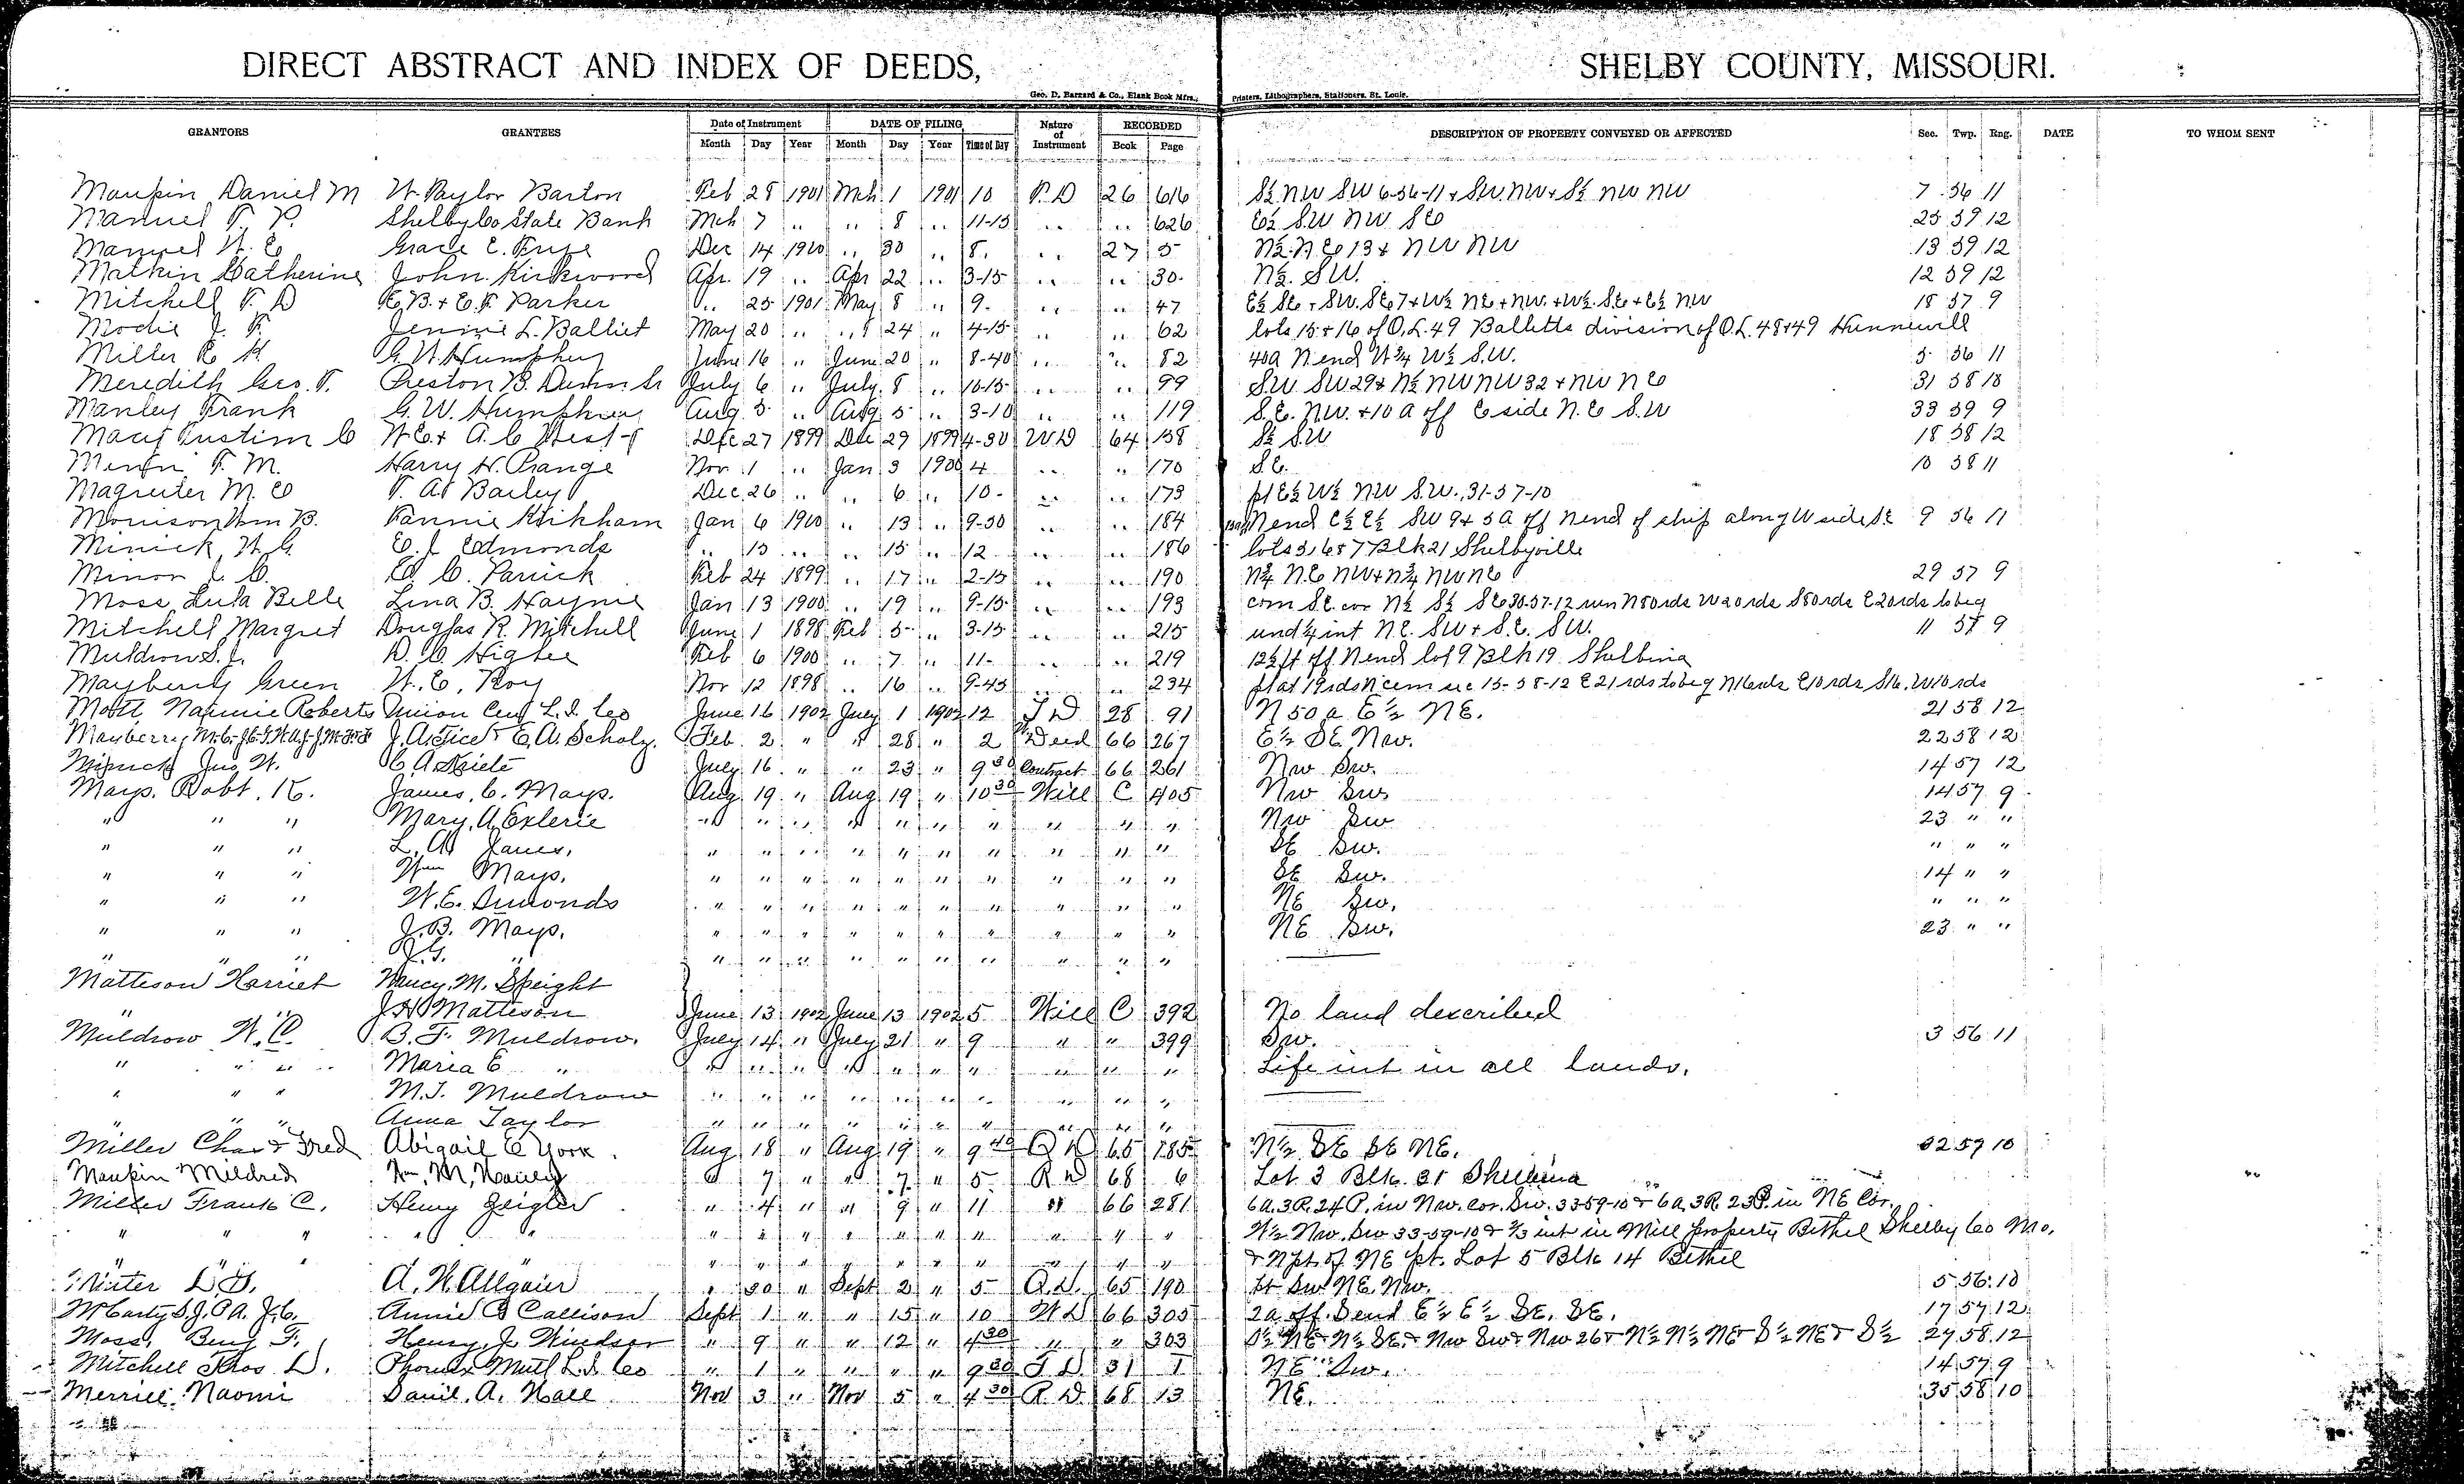 DIRECT ABSTRACT AND INDEX OF DEEDS, SHELBY COUNTY, MISSOURI.
Geo. D. Barnard & Co., Blank Book Mfrs., Printers, Lithographers, Stationers, St. Louis.
GRANTORS GRANTEES Date of Instrument DATE OF FILING Nature of Instrument RECORDED DESCRIPTION OF PROPERTY CONVEYED OR AFFECTED Sec. Twp. Rng. DATE TO WHOM SENT
Month Day Year Month Day Year Time of Day Book Page
Maupin Daniel M W. Taylor Barton Feb 28 1901 Mch 1 1901 10 T. D 26 616 S½ NW SW 6-56-11 + SW NW + S½ NW NW 7 56 11
Manuel T. P. Shelby Co State Bank Mch 7 .. .. 8 .. 11-15 .. .. 626 E½ SW NW SE 25 59 12
Manuel W. E Grace E. Frye Dec 14 1900 .. 30 .. 8. .. 27 5 N½ NE 13 + NW NW 13 59 12
Matkin Catherine John Kirkwood Apr. 19 .. Apr 22 .. 3-15 .. .. 30 N½ SW. 12 59 12
Mitchell T. D E. B. + E. F. Parker .. 25 1901 May 8 .. 9. .. .. 47 E½ SE + SW. SE 7 + W½ NE + NW. + W½ SE + E½ NW 18 57 9
Modie J. F. Jennie L. Balliet May 20 .. .. 24 .. 4-15 .. .. 62 lots 15 + 16 of O. L. 49 Balletts division of O. L. 48 + 49 Hunnewell
Miller E. K G. W. Humphrey June 16 .. June 20 .. 8-40 .. .. 82 40a N end W¾ W½ S.W. 5 56 11
Meredith Geo. T. Preston B. Dunn Sr July 6 .. July 8 .. 10-15 .. .. 99 SW SW 29 + N½ NW NW 32 + NW NE 31 58 10
Manley Frank G. W. Humphrey Aug 5 .. Aug 5 .. 3-10 .. .. 119 S.E. NW. + 10 a off E side N.E S.W 33 59 9
Macy Justin C W E + A. C West Dec 27 1899 Dec 29 1899 4-30 WD 64 158 S½ SW 18 58 12
T. M. Harry H. Prange Nov 1 .. Jan 3 1900 4 .. .. 170 S.E. 10 58 11
Magruter M. E T. A. Bailey Dec 26 .. .. 6 .. 10- .. .. 173 pt E½ W½ NW S.W. 31-57-10
Morrison Wm B. Fannie Kirkham Jan 6 1900 .. 13 .. 9-30 .. .. 184 N end E½ E½ SW 9 + 5 a off N end of strip along W side SE 9 56 11
Minick W. G. E. J. Edmonds .. 15 .. .. 15 .. 12 .. .. 186 lots 5, 6 + 7 Blk 21 Shelbyville
Minor J. C. E. C. Parrick Feb 24 1899 .. 17 .. 2-15 .. .. 190 N¾ N.E NW + N¾ NW NE 29 57 9
Moss Lula Belle Lina B. Hayne Jan 13 1900 .. 19 .. 9-15 .. .. 193 com S.E. cor N½ S½ SE 30-57-12 run N 80 rds W 20 rds S 80 rds E 20 rds to beg
Mitchell Margret Douglas R. Mitchell June 1 1898 Feb 5 .. 3-15 .. .. 215 und ¼ int N.E. SW + S.E. SW. 11 57 9
Muldrow S. J. D. C. Higbee Feb 6 1900 .. 7 .. 11- .. .. 219 12½ ft off N end lot 9 Blk 19 Shelbina
Mayberry Green W. E. Roy Nov 12 1898 .. 16 .. 9-45 .. .. 234 pt at 19 rds N cem sec 15-58-12 E 21 rds to beg N 16 rds E 10 rds S 16. W 10 rds
Mott Nannie Roberts Union Cent L. I. Co June 16 1902 July 1 1902 12 T D 28 91 N 50 a E½ NE. 21 58 12
Mayberry J. A. Tice + E. A. Scholz. Feb. 2 " " 28 " 2 Deed 66 267 E½ SE NW. 22 58 12
Minick Jno W. C. A. July 16 " " 23 " 9 30 Contract 66 261 NW SW. 14 57 12
Mays. Robt. K. James. C. Mays. Aug 19 " Aug 19 " 10 30 Will C 405 NW SW 14 57 9
" " " Mary. A. Exlerie " " " " " " " " " " NW SW 23 " "
" " " L. A. Janes, " " " " " " " " " " SE SW. " " "
" " " Wm Mays. " " " " " " " " " " SE SW. 14 " "
" " " W. E. Simonds " " " " " " " " " " NE SW. " " "
" " " J. B. Mays. " " " " " " " " " " NE SW. 23 " "
" " " R. G. " " " " " " " " " " "
Matteson Harriet Nancy. M. Speight
" J H Matteson June 13 1902 June 13 1902 5 Will C 392 No land described
Muldrow W. C. B. F. Muldrow. July 14 " July 21 " 9 " " 399 SW. 3 56 11
" " " Maria E " " " " " " " " " " " Life int in all lands.
" " " M. J. Muldrow " " " " " " " " " "
" " " Anna Taylor " " " " " " " " " "
Miller Chas + Fred Abigail E York. Aug 18 " Aug 19 " 9 40 Q D 65 185 N½ SE SE NE. 32 59 10
Maupin Mildred Wm. M. " 7 " " 7 " 5 R D 68 6 Lot 3 Blk. 31 Shelbina
Miller Frank C. Henry Zeigler " 4 " " 9 " 11 " 66 281 6a. 3R. 24P. in NW. cor. SW. 33-59-10 + 6a 3R. 23P. in NE Cor.
" " " " " " " " " " " " " " " W½ NW. SW 33-59-10 + ⅓ int in Mill property Bethel Shelby Co Mo.
" " " " " " " " " " " " " " + N pt. of NE pt. Lot 5 Blk 14 Bethel
Minter L. G. A. W. Allgaier " 30 " Sept 2 " 5 Q. D. 65 190 pt SW NE. NW. 5 56 10
McCarty S J. P A. J. C. Annie B Callison Sept 1 " " 15 " 10 W D 66 305 2a off. S end E½ E½ SE. SE. 17 57 12
Moss, Benj F. Henry. J. Windsor " 9 " " 12 " 4 30 " " 303 S½ NE + N½ SE. + NW SW + NW 26 + N½ N½ NE + S½ NE + S½ 27 58 12
Mitchell Thos D. Phoenix Mutl L. I. Co " 1 " " " " 9 30 T D 31 1 NE SW. 14 57 9
Merrill. Naomi Daniel. A. Hall Nov 3 " Nov 5 " 4 30 R. D. 68 13 NE. 35 58 10